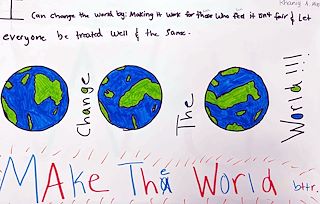 I can change the world by: Making it work for those who feel it isn't fair & Let
everyone be treated well & the same.
Change The World!!!
Make The World bttr.